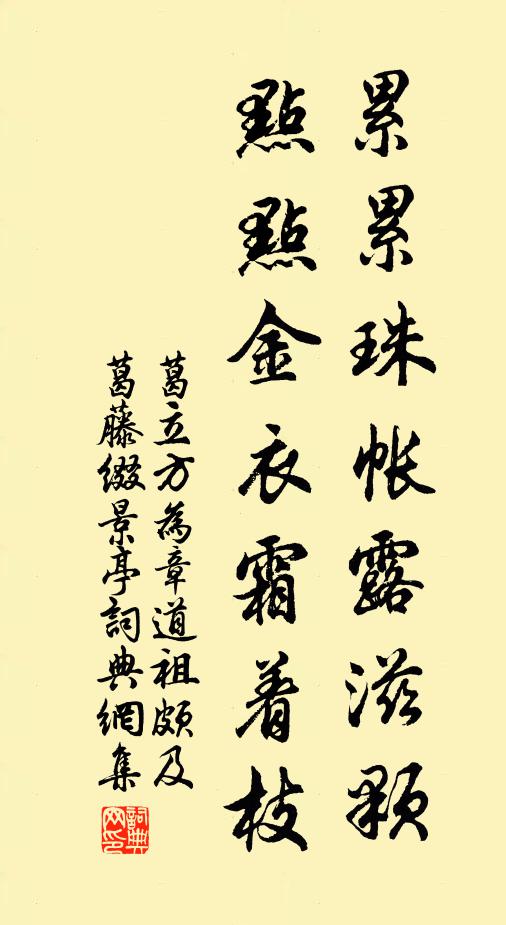 累累珠帳露滋顆
點點金衣霜着枝
葛立方為章道祖頗及
葛藤缀景亭詞典網集
詞典网印